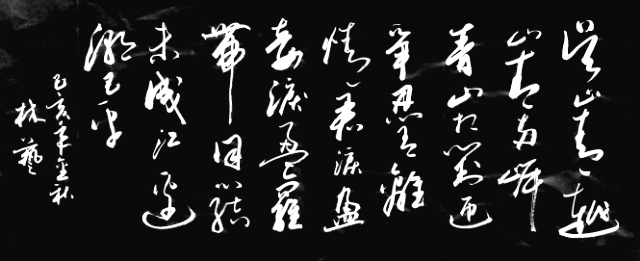 吳山青越
山青兩岸
青山相對迎
爭忍有離
情君淚盈
妾淚盈羅
帶同心結
未成江邊
潮已平
己亥年金秋
林藝